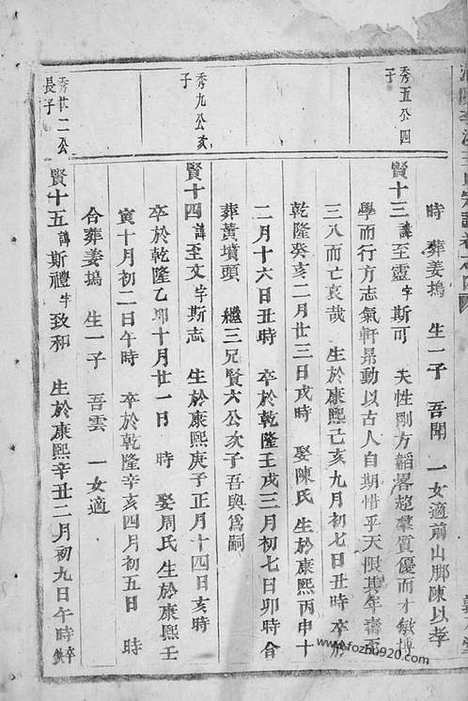 時 葬姜塢 生一子 吾聞 一女適前山腳陳以孝
秀五公四子
賢十三諱至靈字斯可 夫性剛方韜畧超羣質優而才敏博
學而行方志氣軒昻動以古人自期惜乎天限其年壽不
三八而亡哀哉 生於康熙己亥九月初七日丑時 卒於
乾隆癸亥二月廿三日戌時 娶陳氏 生於康熙丙申十
二月十六日丑時 卒於乾隆壬戌三月初七日卯時 合
葬黄墳頭 繼三兄賢六公次子吾與爲嗣
秀九公次子
賢十四諱至文字斯志 生於康熙庚子正月十四日亥時
卒於乾隆乙卯十月廿一日 時 娶周氏 生於康熙壬
寅十月初二日午時 卒於乾隆辛亥四月初五日 時
合葬姜塢 生一子 吾雲 一女適
秀廿二公長子
賢十五諱斯禮字致和 生於康熙辛丑二月初九日午時 卒
www.fozhu920.com